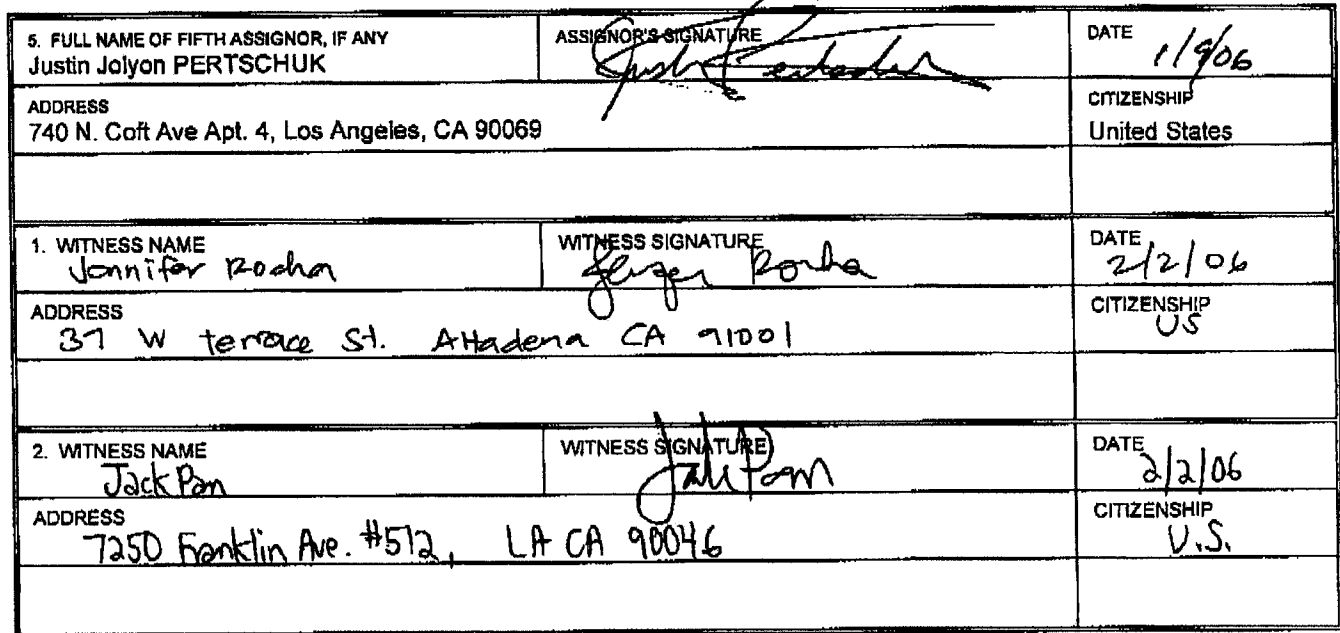 5. FULL NAME OF FIFTH ASSIGNOR, IF ANY
Justin Jolyon PERTSCHUK
ASSIGNOR'S SIGNATURE
DATE
1/9/06
ADDRESS
740 N. Coft Ave Apt. 4, Los Angeles, CA 90069
CITIZENSHIP
United States
1. WITNESS NAME
Jennifer Rocha
WITNESS SIGNATURE
DATE
2/2/06
ADDRESS
37 W terrace St. Altadena CA 91001
CITIZENSHIP
US
2. WITNESS NAME
Jack Pan
WITNESS SIGNATURE
Jack Pan
DATE
2/2/06
ADDRESS
7250 Franklin Ave. #512, LA CA 90046
CITIZENSHIP
U.S.